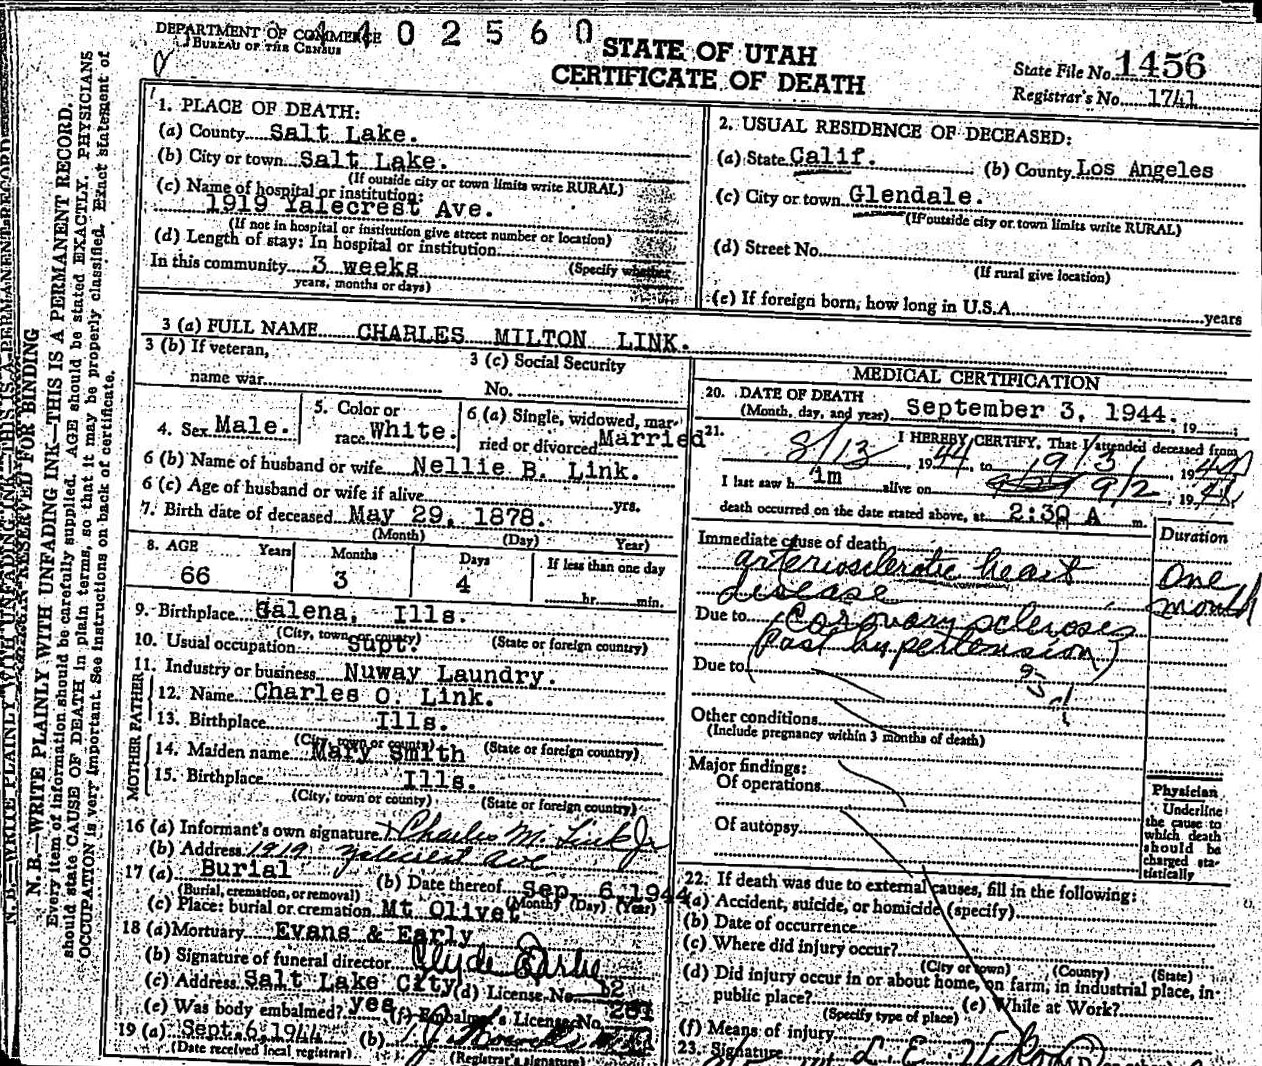 DEPARTMENT OF COMMERCE
BUREAU OF THE CENSUS
4402560
STATE OF UTAH
CERTIFICATE OF DEATH
State File No. 1456
Registrar's No. 1741
N. B.—WRITE PLAINLY WITH UNFADING INK—THIS IS A PERMANENT RECORD.
RESERVED FOR BINDING
Every item of information should be carefully supplied. AGE should be stated EXACTLY. PHYSICIANS
should state CAUSE OF DEATH in plain terms, so that it may be properly classified. Exact statement of
OCCUPATION is very important. See instructions on back of certificate.
1. PLACE OF DEATH:
(a) County Salt Lake.
(b) City or town Salt Lake.
(If outside city or town limits write RURAL)
(c) Name of hospital or institution:
1919 Yalecrest Ave.
(If not in hospital or institution give street number or location)
(d) Length of stay: In hospital or institution
(Specify whether
In this community 3 weeks
years, months or days)
2. USUAL RESIDENCE OF DECEASED:
(a) State Calif. (b) County Los Angeles
(c) City or town Glendale.
(If outside city or town limits write RURAL)
(d) Street No.
(If rural give location)
(e) If foreign born, how long in U.S.A. years
3 (a) FULL NAME CHARLES MILTON LINK.
3 (b) If veteran,
name war
3 (c) Social Security
No.
4. Sex Male.
5. Color or
race White.
6 (a) Single, widowed, mar-
ried or divorced Married
6 (b) Name of husband or wife Nellie B. Link.
6 (c) Age of husband or wife if alive yrs.
7. Birth date of deceased May 29, 1878.
(Month) (Day) Year)
8. AGE Years Months Days If less than one day
66 3 4 hr. min.
9. Birthplace Galena, Ills.
(City, town or county) (State or foreign country)
10. Usual occupation Supt.
11. Industry or business Nuway Laundry.
FATHER
12. Name Charles O. Link.
13. Birthplace Ills.
(City, town or county) (State or foreign country)
MOTHER
14. Maiden name Mary Smith
15. Birthplace Ills.
(City, town or county) (State or foreign country)
16 (a) Informant's own signature Charles M. Link Jr
(b) Address 1919 Yalecrest Ave
17 (a) Burial (b) Date thereof Sep. 6 1944
(Burial, cremation, or removal) (Month) (Day) (Year)
(c) Place: burial or cremation Mt Olivet
18 (a) Mortuary Evans & Early
(b) Signature of funeral director Clyde Early
(c) Address Salt Lake City (d) License No. 12
(e) Was body embalmed? yes (f) Embalmer's License No. 281
19 (a) Sept. 6, 1944 (b)
(Date received local registrar) (Registrar's signature)
MEDICAL CERTIFICATION
20. DATE OF DEATH
(Month, day, and year) September 3, 1944. 19
21. I HEREBY CERTIFY, That I attended deceased from
8/13, 1944, to 9/3/, 1944
I last saw h im alive on 9/2, 1944,
death occurred on the date stated above, at 2:30 A m.
Immediate cause of death
Duration
arteriosclerotic heart
disease
One
month
Due to Coronary sclerosis
(Past hypertension)
Due to
Other conditions
(Include pregnancy within 3 months of death)
Major findings:
Of operations
Of autopsy
Physician
Underline
the cause to
which death
should be
charged sta-
tistically
22. If death was due to external causes, fill in the following:
(a) Accident, suicide, or homicide (specify)
(b) Date of occurrence
(c) Where did injury occur?
(City or town) (County) (State)
(d) Did injury occur in or about home, on farm, in industrial place, in
public place? (e) While at Work?
(Specify type of place)
(f) Means of injury
23. Signature L. E.